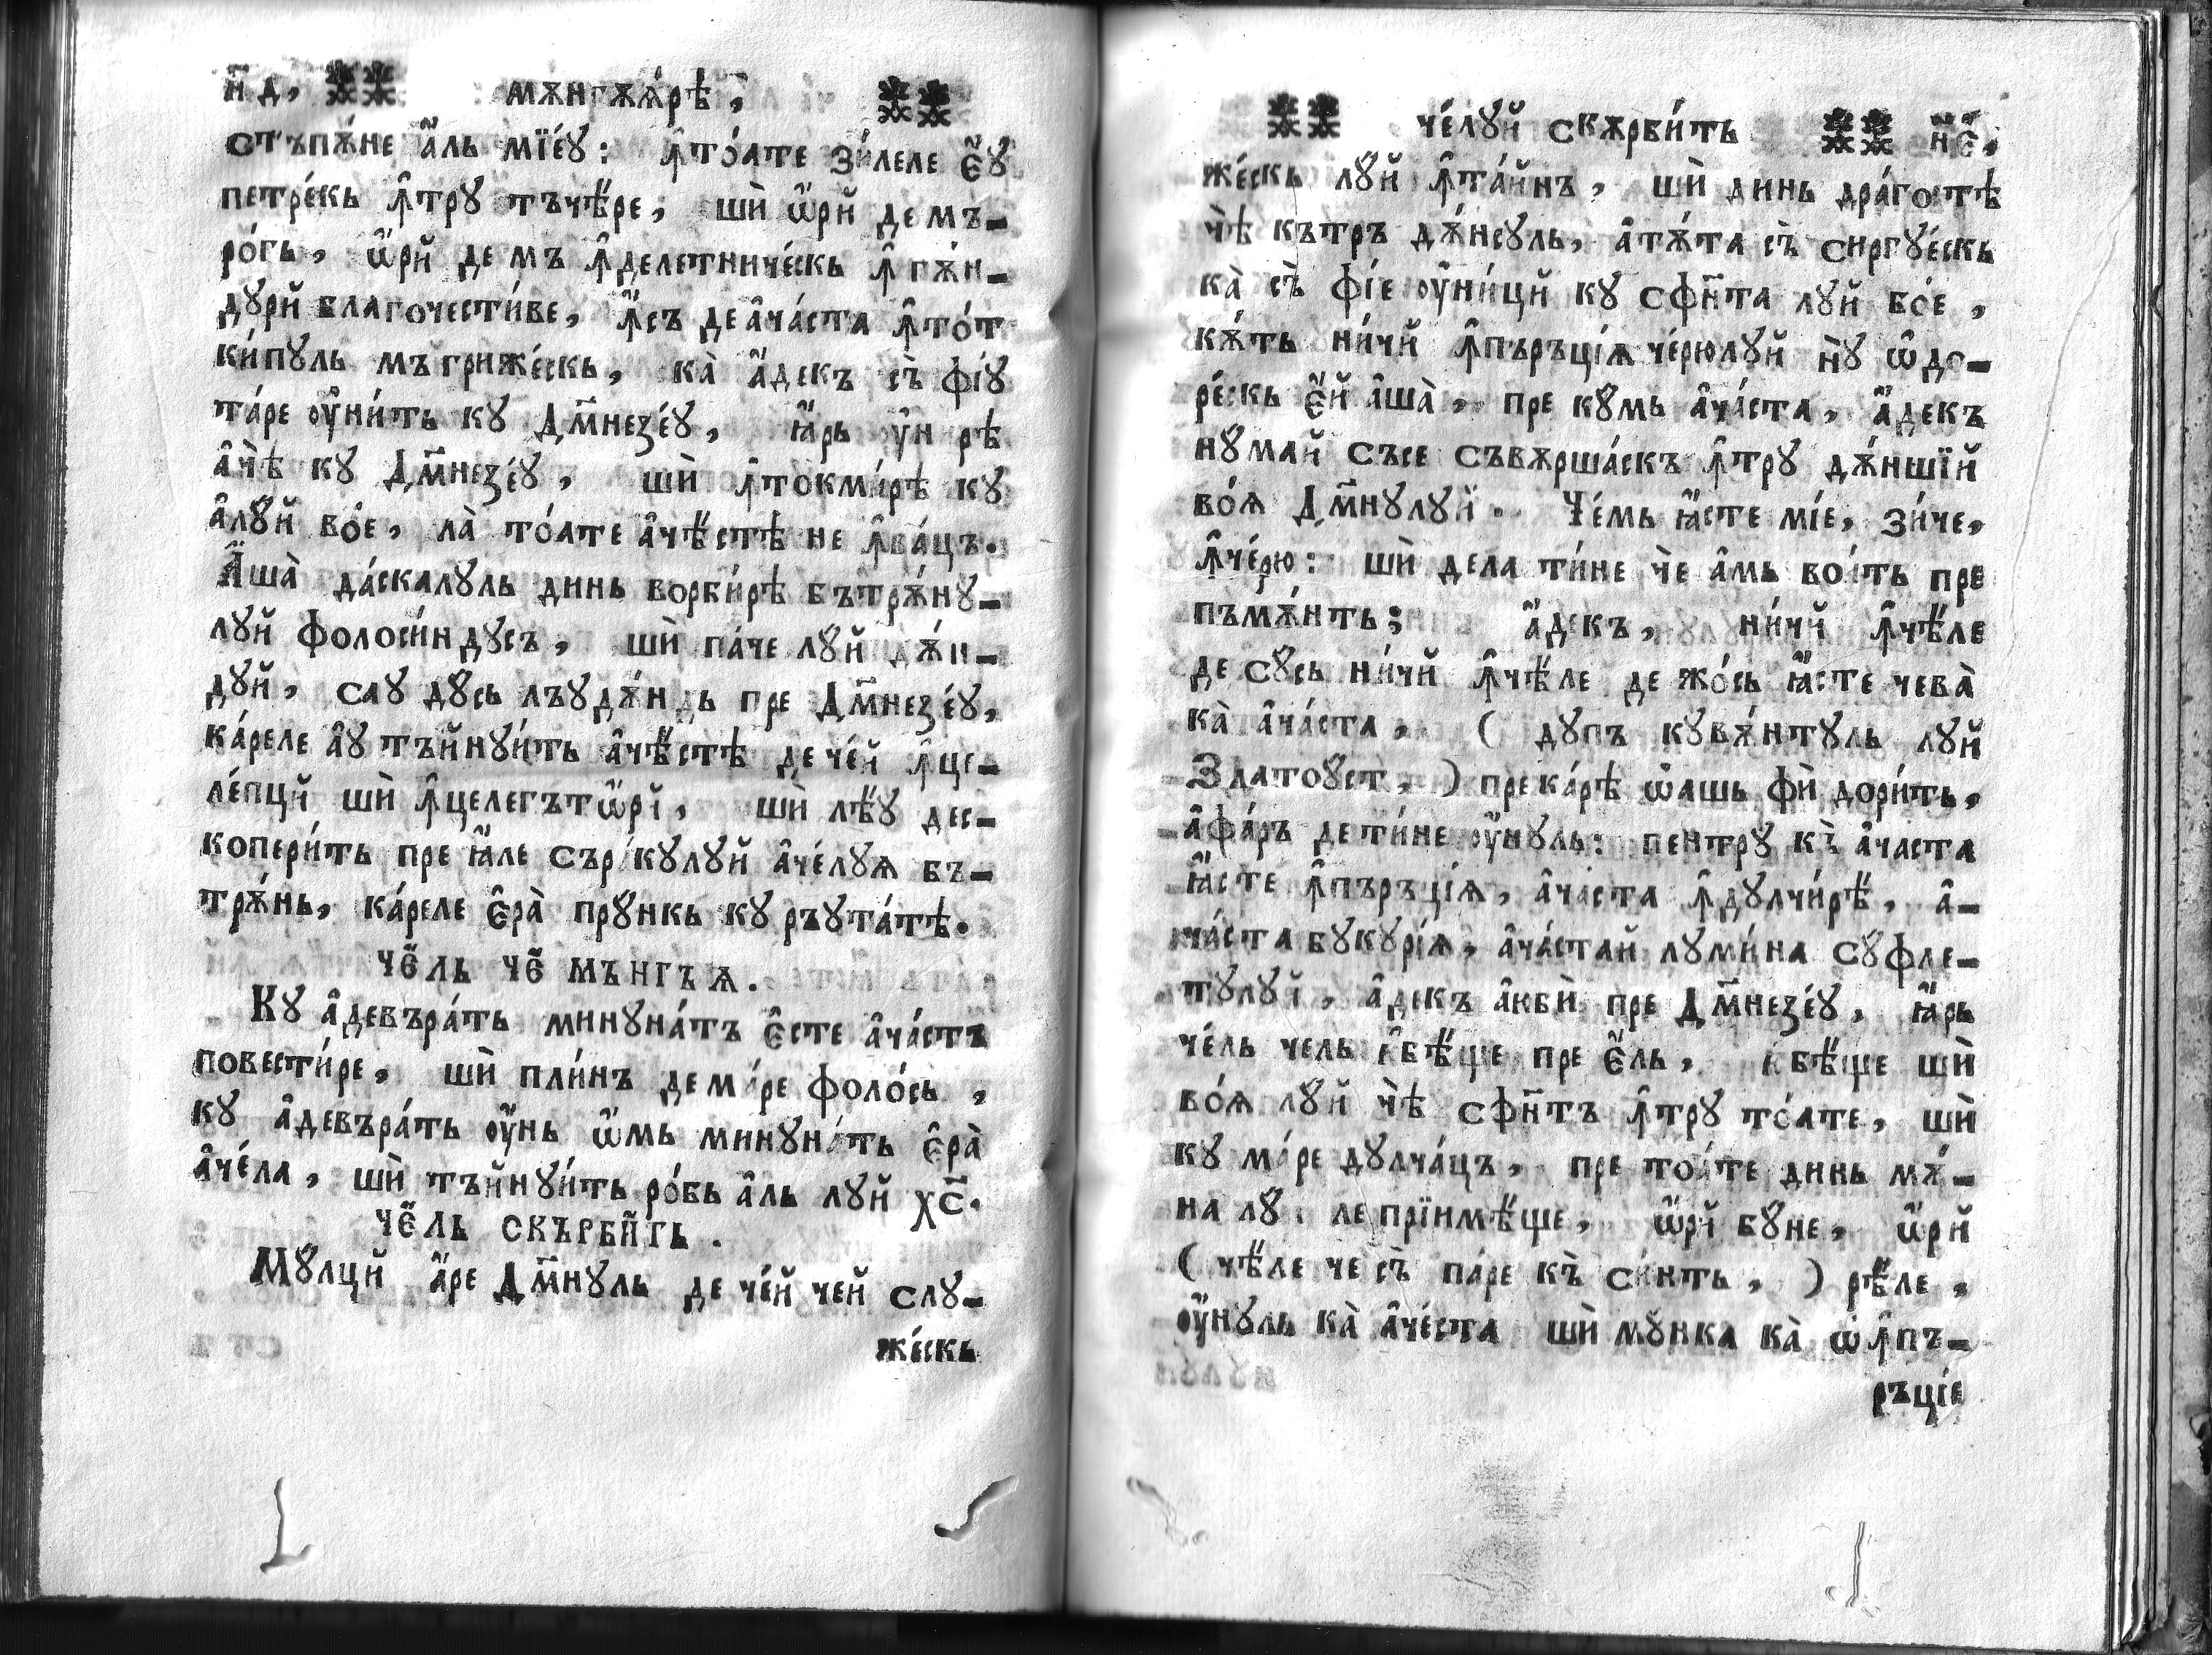 н҃д, мѫнгѫѧ́рѣ,
стъпѫ́не а҆́ль мїе́ꙋ: ꙟ҆то́ате зи́леле є҆́ꙋ
петре́кь ꙟ҆трꙋ тъчѣ́ре, шѝ ѡ҆́рй де мъ-
ро́гь, ѡ҆́рй де мъ ꙟ҆делетниче́скь ꙟ҆ гѫ́н-
дꙋрй благочести́ве, ꙟ҆́съ де а҆ча́ста ꙟ҆то́т
ки́пꙋль мъ гриже́скь, ка̀ а҆́декъ съ̀ фі́ꙋ
та́ре оу҆ни́ть кꙋ Дм҃незе́ꙋ, ꙗ҆́рь ꙋ҆ни рѣ
а҆чѣ̀ кꙋ Дм҃незе́ꙋ, шѝ ꙟ҆токми́рѣ кꙋ
а҆лꙋ́й во́е, ла̀ то́ате а҆чѣ́стѣ не ꙟ҆ва́цъ.
А҆́ша̀ да́скалꙋль динь ворби́рѣ бътрѫ́нꙋ-
лꙋй фолоси́ндꙋсъ, шѝ па́че лꙋ́й дѫ́н-
дꙋй, саꙋ дꙋ́сь лъꙋдѫ́ндь пре Дм҃незе́ꙋ,
ка́реле а҆́ꙋ тъйнꙋи́ть а҆чѣ́стѣ де че́й ꙟ҆це-
ле́пцй шѝ ꙟ҆целегътѡ́рї, шѝ лѣ́ꙋ дес-
копери́ть пре ꙗ҆́ле съра́кꙋлꙋй а҆че́лꙋѧ бъ-
трѫ́нь, ка́реле є҆ра̀ прꙋ́нкь кꙋ ръꙋта́тѣ.
че́ль че́ мънгъѧ.
Кꙋ а҆девъра́ть минꙋна́тъ є҆́сте а҆ча́стъ
повести́ре, шѝ пли́нъ де ма́ре фоло́сь,
кꙋ а҆девъра́ть оу҆́нь ѡ҆́мь минꙋна́ть є҆ра̀
а҆че́ла, шѝ тъйнꙋи́ть ро́бь а҆́ль лꙋй хс҃.
че́ль скърби́ть.
Мꙋ́лцй а҆́ре Дм҃нꙋль де че́й чей слꙋ-
же́скь
че́лꙋй скѫрби́ть н҃є,
же́скь лꙋ́й ꙟ҆та́йнъ, шѝ динь дра́гостѣ
чѣ̀ кътръ дѫ́нсꙋль, а҆тѫ́та съ̀ сиргꙋе́скь
ка̀ съ̀ фі́е оу҆ни́цй кꙋ сфн҃та лꙋй во́е,
кѫ́ть ни́чй ꙟ҆пъръці́ѧ че́рюлꙋй нꙋ̀ ѡ҆ до-
ре́скь є҆́й а҆ша̀, пре кꙋмь а҆ча́ста, а҆́декъ
нꙋ́май съсе съвѫрша́скъ ꙟ҆трꙋ дѫ́ншїй
во́ѧ Дм҃нꙋлꙋй. Че́мь ꙗ҆́сте мі́е, зи́че,
ꙟ҆че́рю: шѝ дела ти́не чѐ а҆́мь вои́ть пре
пъмѫ́нть; а҆́декъ, ни́чй ꙟ҆чѣ́ле
де сꙋ́сь ни́чй ꙟ҆чѣ́ле де жо́сь ꙗ҆́сте чева̀
ка̀ а҆ча́ста, ( дꙋпъ кꙋвѫ́нтꙋль лꙋй
Златоꙋст, ) прека́рѣ ѡ҆ашь фѝ дори́ть,
а҆фа́ръ де ти́не оу҆́нꙋль: пентрꙋ къ̀ а҆часта
ꙗ҆́сте ꙟ҆пъръці́ѧ, а҆ча́ста ꙟ҆дꙋлчи́рѣ, а҆-
ча́ста бꙋкꙋрі́ѧ, а҆ча́стай лꙋми́на сꙋфле-
тꙋлꙋй, а҆́декъ а҆юбѝ пре Дм҃незе́ꙋ, ꙗ҆́рь
че́ль чель ю҆бѣ́ще пре є҆́ль, ю҆бѣ́ще шѝ
во́ѧ лꙋ́й чѣ̀ сфн҃тъ ꙟ҆трꙋ то́ате, шѝ
кꙋ ма́ре дꙋлча́цъ, пре тоа́те динь мѫ́-
на лꙋ́й ле прїимѣ́ще, ѡ҆́рй бꙋне, ѡ҆́рй
( чѣ́ле че съ̀ па́ре къ̀ си́нть, ) рѣ́ле,
оу҆́нꙋль ка̀ а҆че́ста шѝ мꙋ́нка ка̀ ѡ҆ ꙟ҆пъ-
ръціе